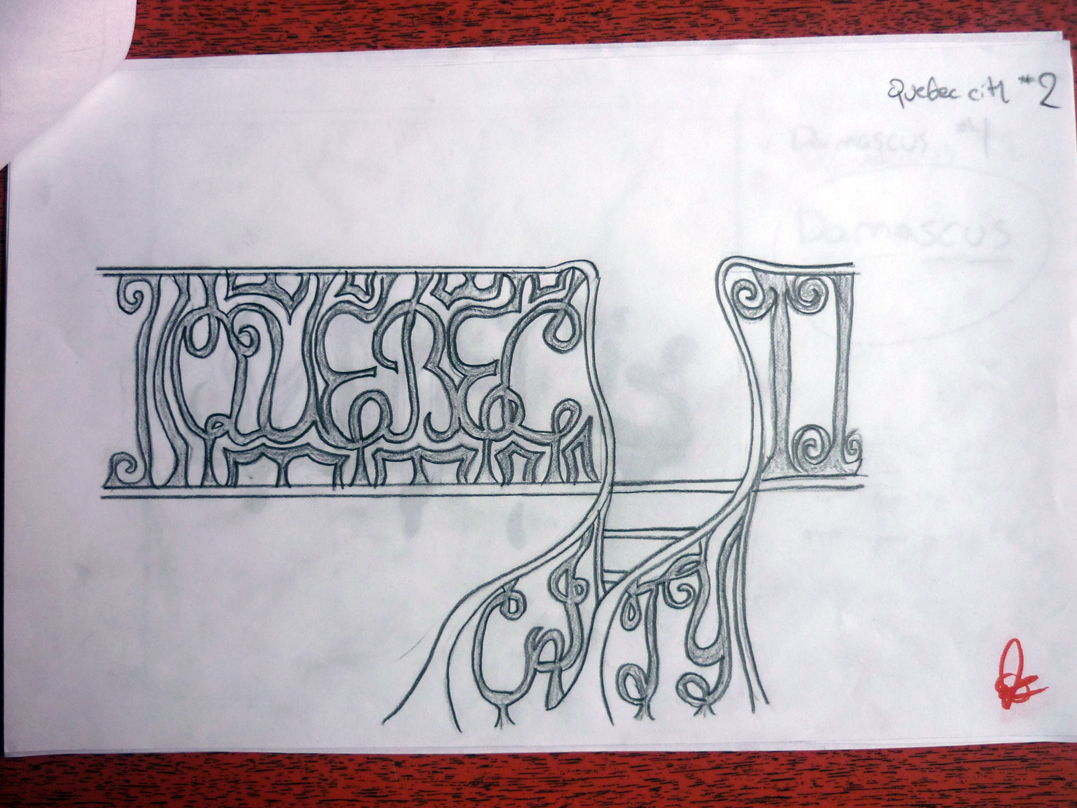 Quebec city #2
Damascus #4
Damascus
QUEBEC
CITY